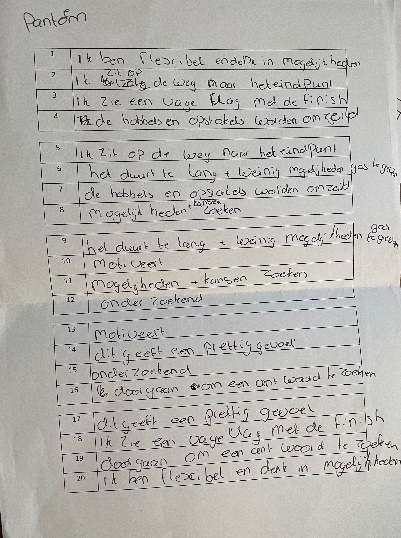 Pantoen
1 Ik ben flexibel en denk in mogelijkheden
2 Ik zit op de weg naar het eindpunt
3 Ik zie een vage vlag met de finish
4 de hobbels en opstakels worden omzeild
5 Ik zit op de weg naar het eindpunt
6 het duurt te lang + weinig mogelijkheden
7 de hobbels en opstakels worden omzeild
8 mogelijkheden + kansen zoeken
9 het duurt te lang + weinig mogelijkheden
10 motiveert
11 mogelijkheden + kansen zoeken
12 onderzoekend
13 motiveert
14 dit geeft een prettig gevoel
15 onderzoekend
16 doorgaan om een antwoord te zoeken
17 dit geeft een prettig gevoel
18 Ik zie een vage vlag met de finish
19 doorgaan om een antwoord te zoeken
20 Ik ben flexibel en denk in mogelijkheden